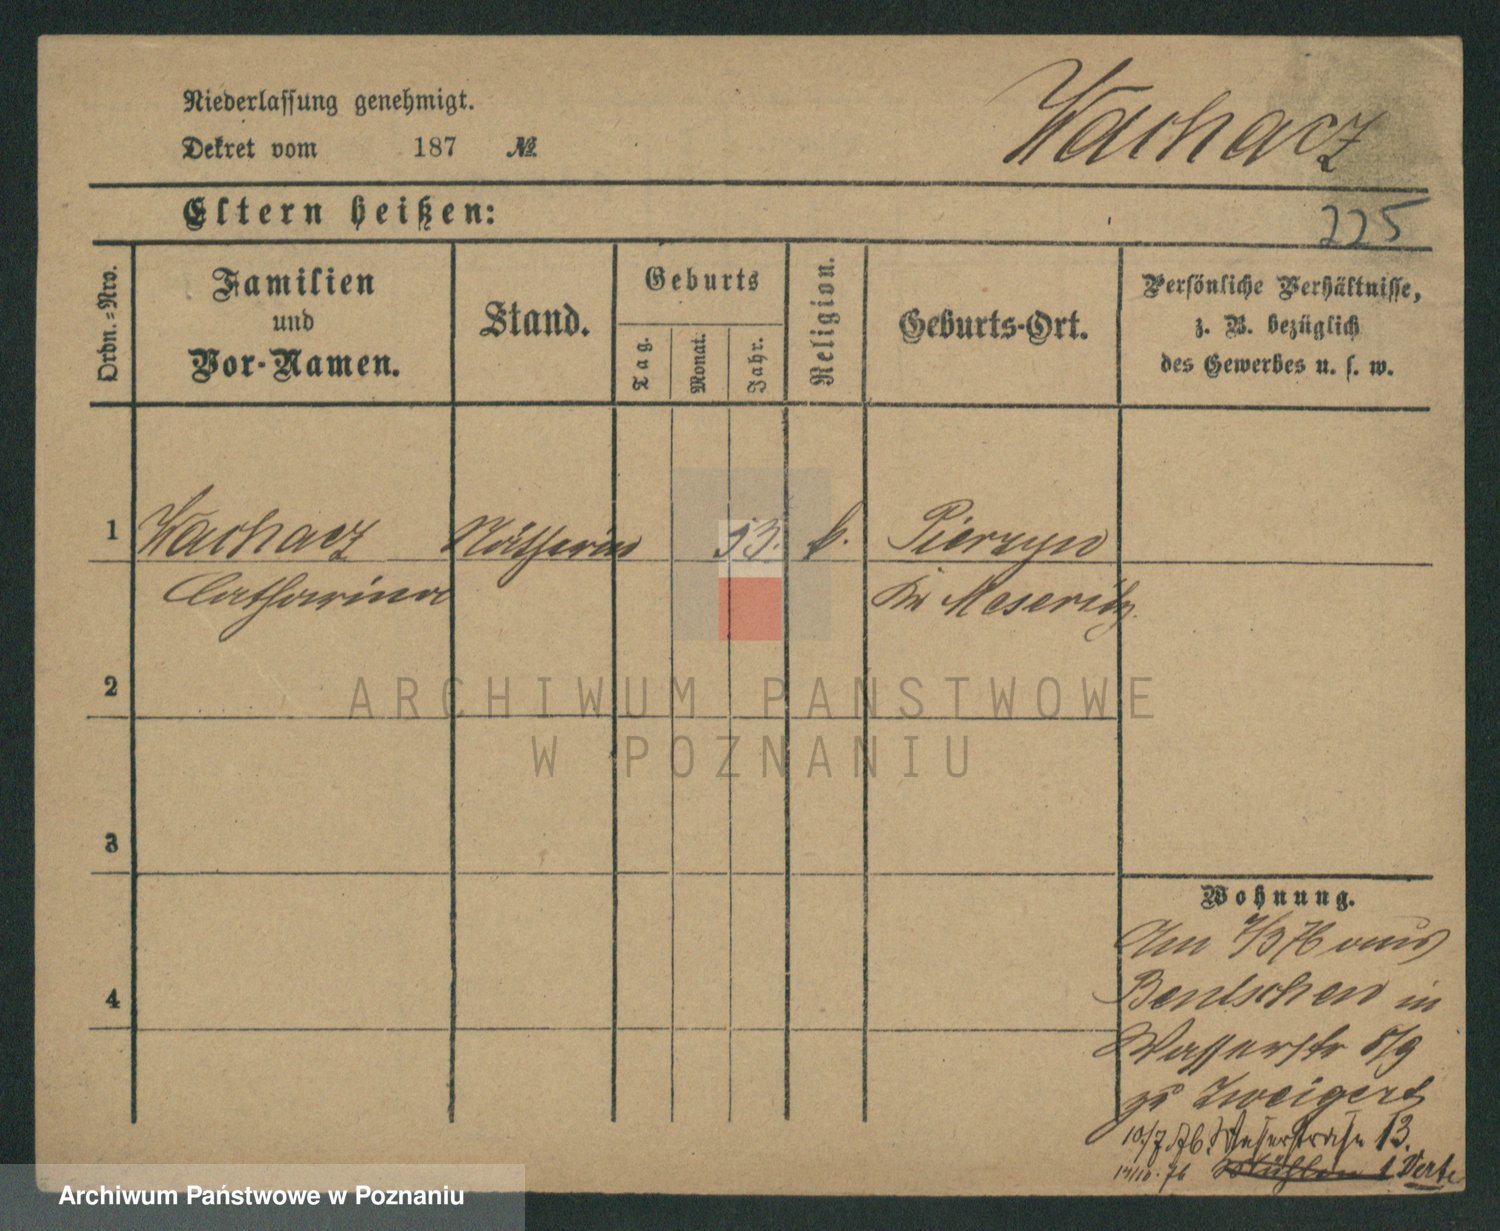 Niederlassung genehmigt.
Dekret vom 187 №
Wachacz
Eltern heißen:
225
Ordn.=Nro.
Familien
und
Vor-Namen.
Stand.
Geburts
Tag.
Monat.
Jahr.
Religion.
Geburts-Ort.
Persönliche Verhältnisse,
z. B. bezüglich
des Gewerbes u. s. w.
1 Wachacz Nätherin 53. k. Pierzyn
Catharina Kr Meseritz
2
3
4
Wohnung.
Am 7/3 76 aus
Bentschen in
Wasserstr 8/9
zu Zweigert
10/7 76. Wasserstraße 13.
14/10. 76 1 Verte
ARCHIWUM PAŃSTWOWE
W POZNANIU
Archiwum Państwowe w Poznaniu